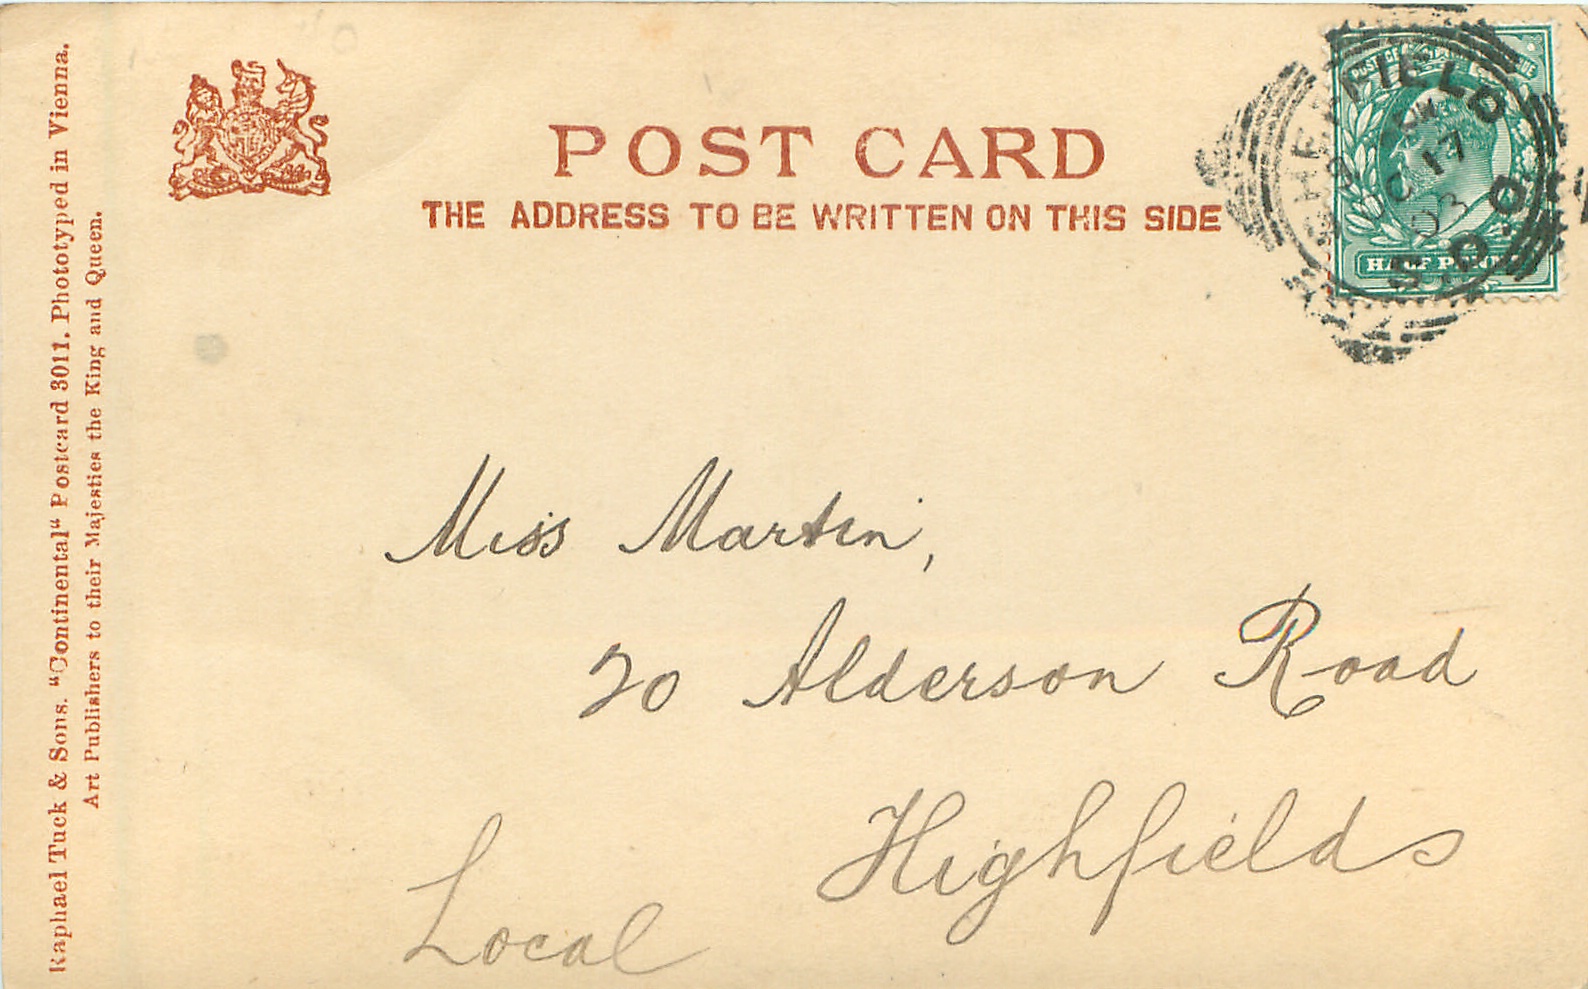 POST CARD
THE ADDRESS TO BE WRITTEN ON THIS SIDE
Raphael Tuck & Sons. "Continental" Postcard 3011. Phototyped in Vienna.
Art Publishers to their Majesties the King and Queen.
HALF PENNY
S.O.
OC 17
03
Miss Martin,
20 Alderson Road
Highfields
Local